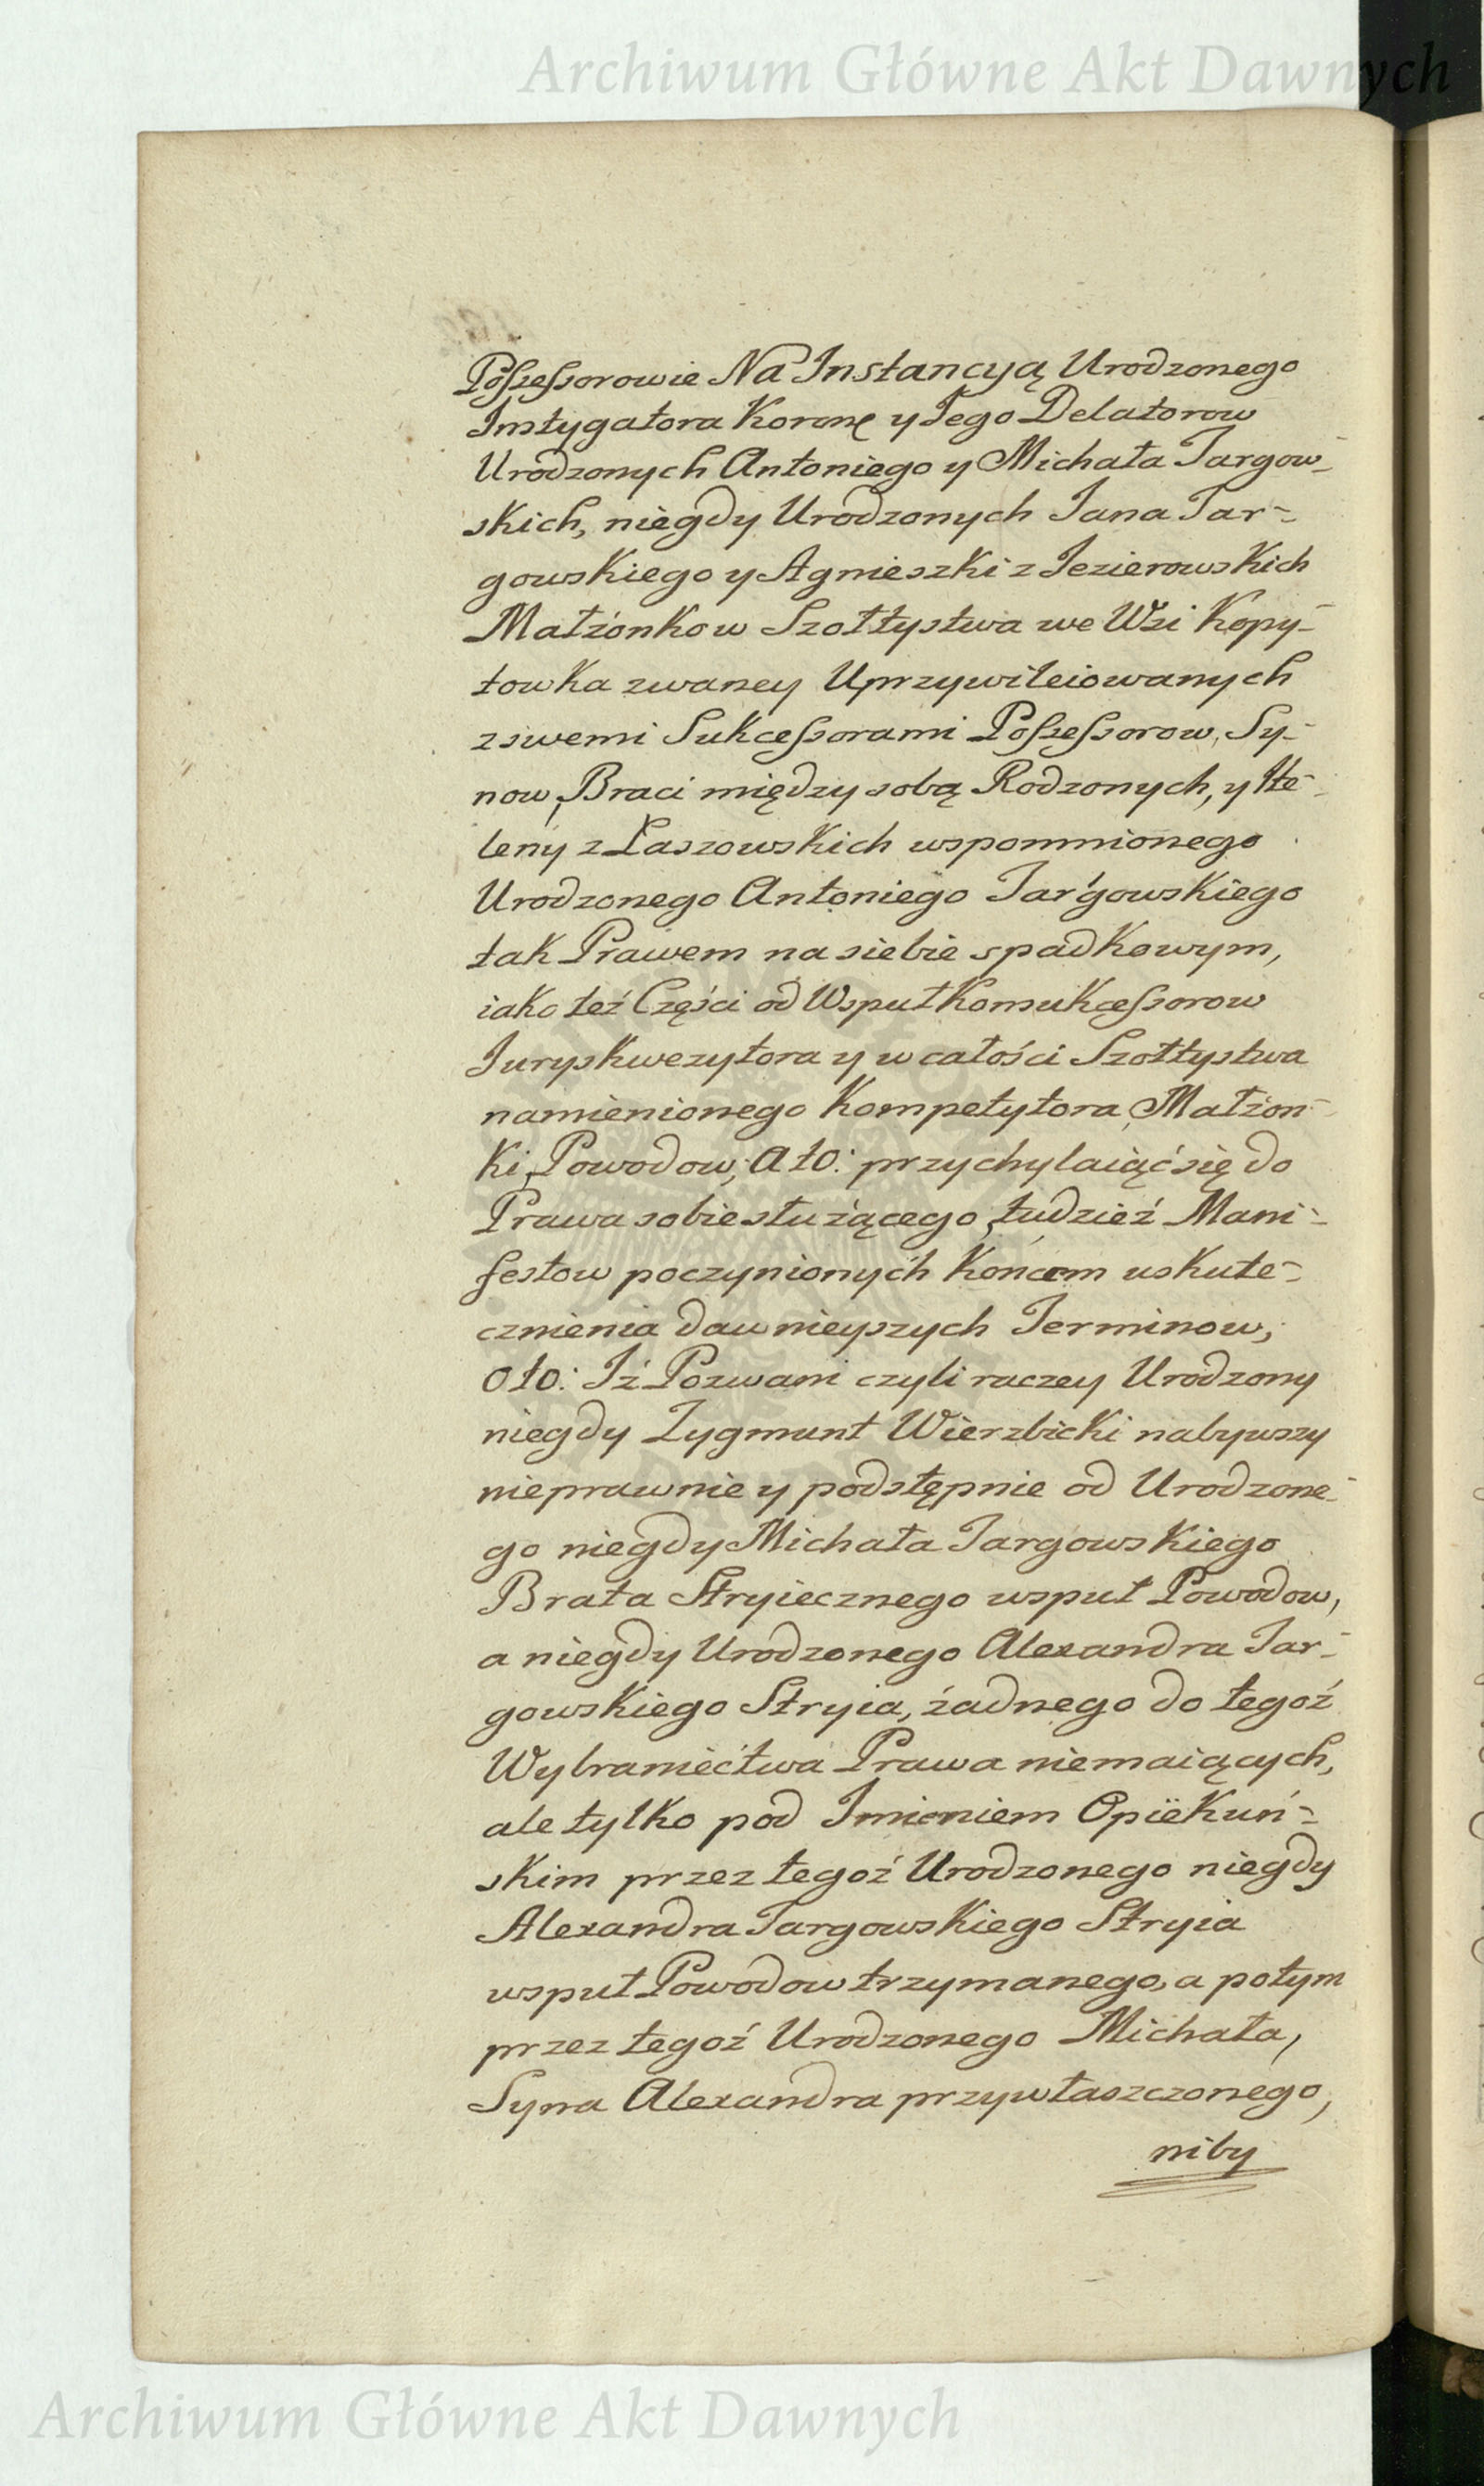 Archiwum Główne Akt Dawnych
Possessorowie Na Instancyą Urodzonego
Instygatora Koronę y Jego Delatorow
Urodzonych Antoniego y Michała Targow-
skich, niegdy Urodzonych Jana Tar-
gowskiego y Agnieszki z Jezierowskich
Małżonkow Szołtystwa we Wsi Kopy-
towka zwaney Uprzywileiowanych
z swemi Sukcessorami Possessorow, Sy-
now, Braci między sobą Rodzonych, y He-
leny z Laszowskich wspomnionego
Urodzonego Antoniego Targowskiego
tak Prawem na siebie spadkowym,
iako też Części od Wspułkonsukcessorow
Juryskwezytora y w całości Szołtystwa
namienionego Kompetytora, Małżon-
ki, Powodow; Oto: przychylaiąć się do
Prawa sobie służącego, tudzież Mani-
festow poczynionych Koncem uskute-
cznienia dawnieyszych Terminow,
Oto: Iż Pozwani czyli raczey Urodzony
niegdy Zygmunt Wierzbicki nabywszy
nieprawnie y podstępnie od Urodzone-
go niegdy Michała Targowskiego
Brata Stryiecznego wspuł Powodow,
a niegdy Urodzonego Alexandra Tar-
gowskiego Stryia, żadnego do tegoż
Wybraniectwa Prawa niemaiących,
ale tylko pod Imieniem Opiekuń-
skim przez tegoż Urodzonego niegdy
Alexandra Targowskiego Stryia
wspuł Powodow trzymanego, a potym
przez tegoż Urodzonego Michała,
Syna Alexandra przywłaszczonego,
niby
Archiwum Główne Akt Dawnych